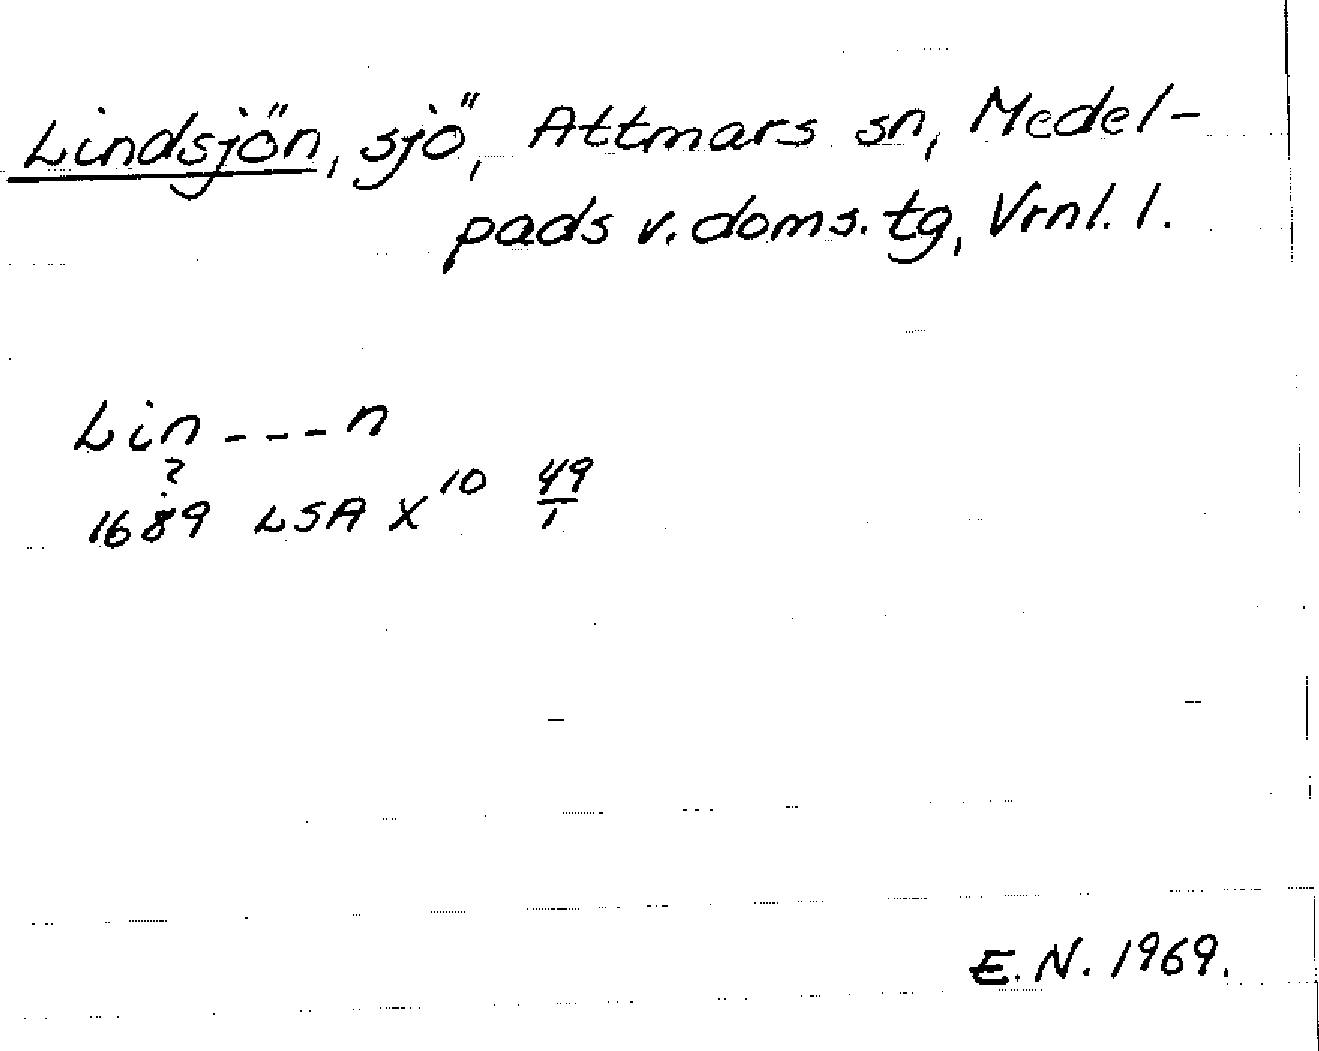 Lindsjön, sjö, Attmars sn, Medel-
pads v. doms. tg, Vrnl. l.
Lin---n
?
1689 LSA X10 49/1
E. N. 1969.